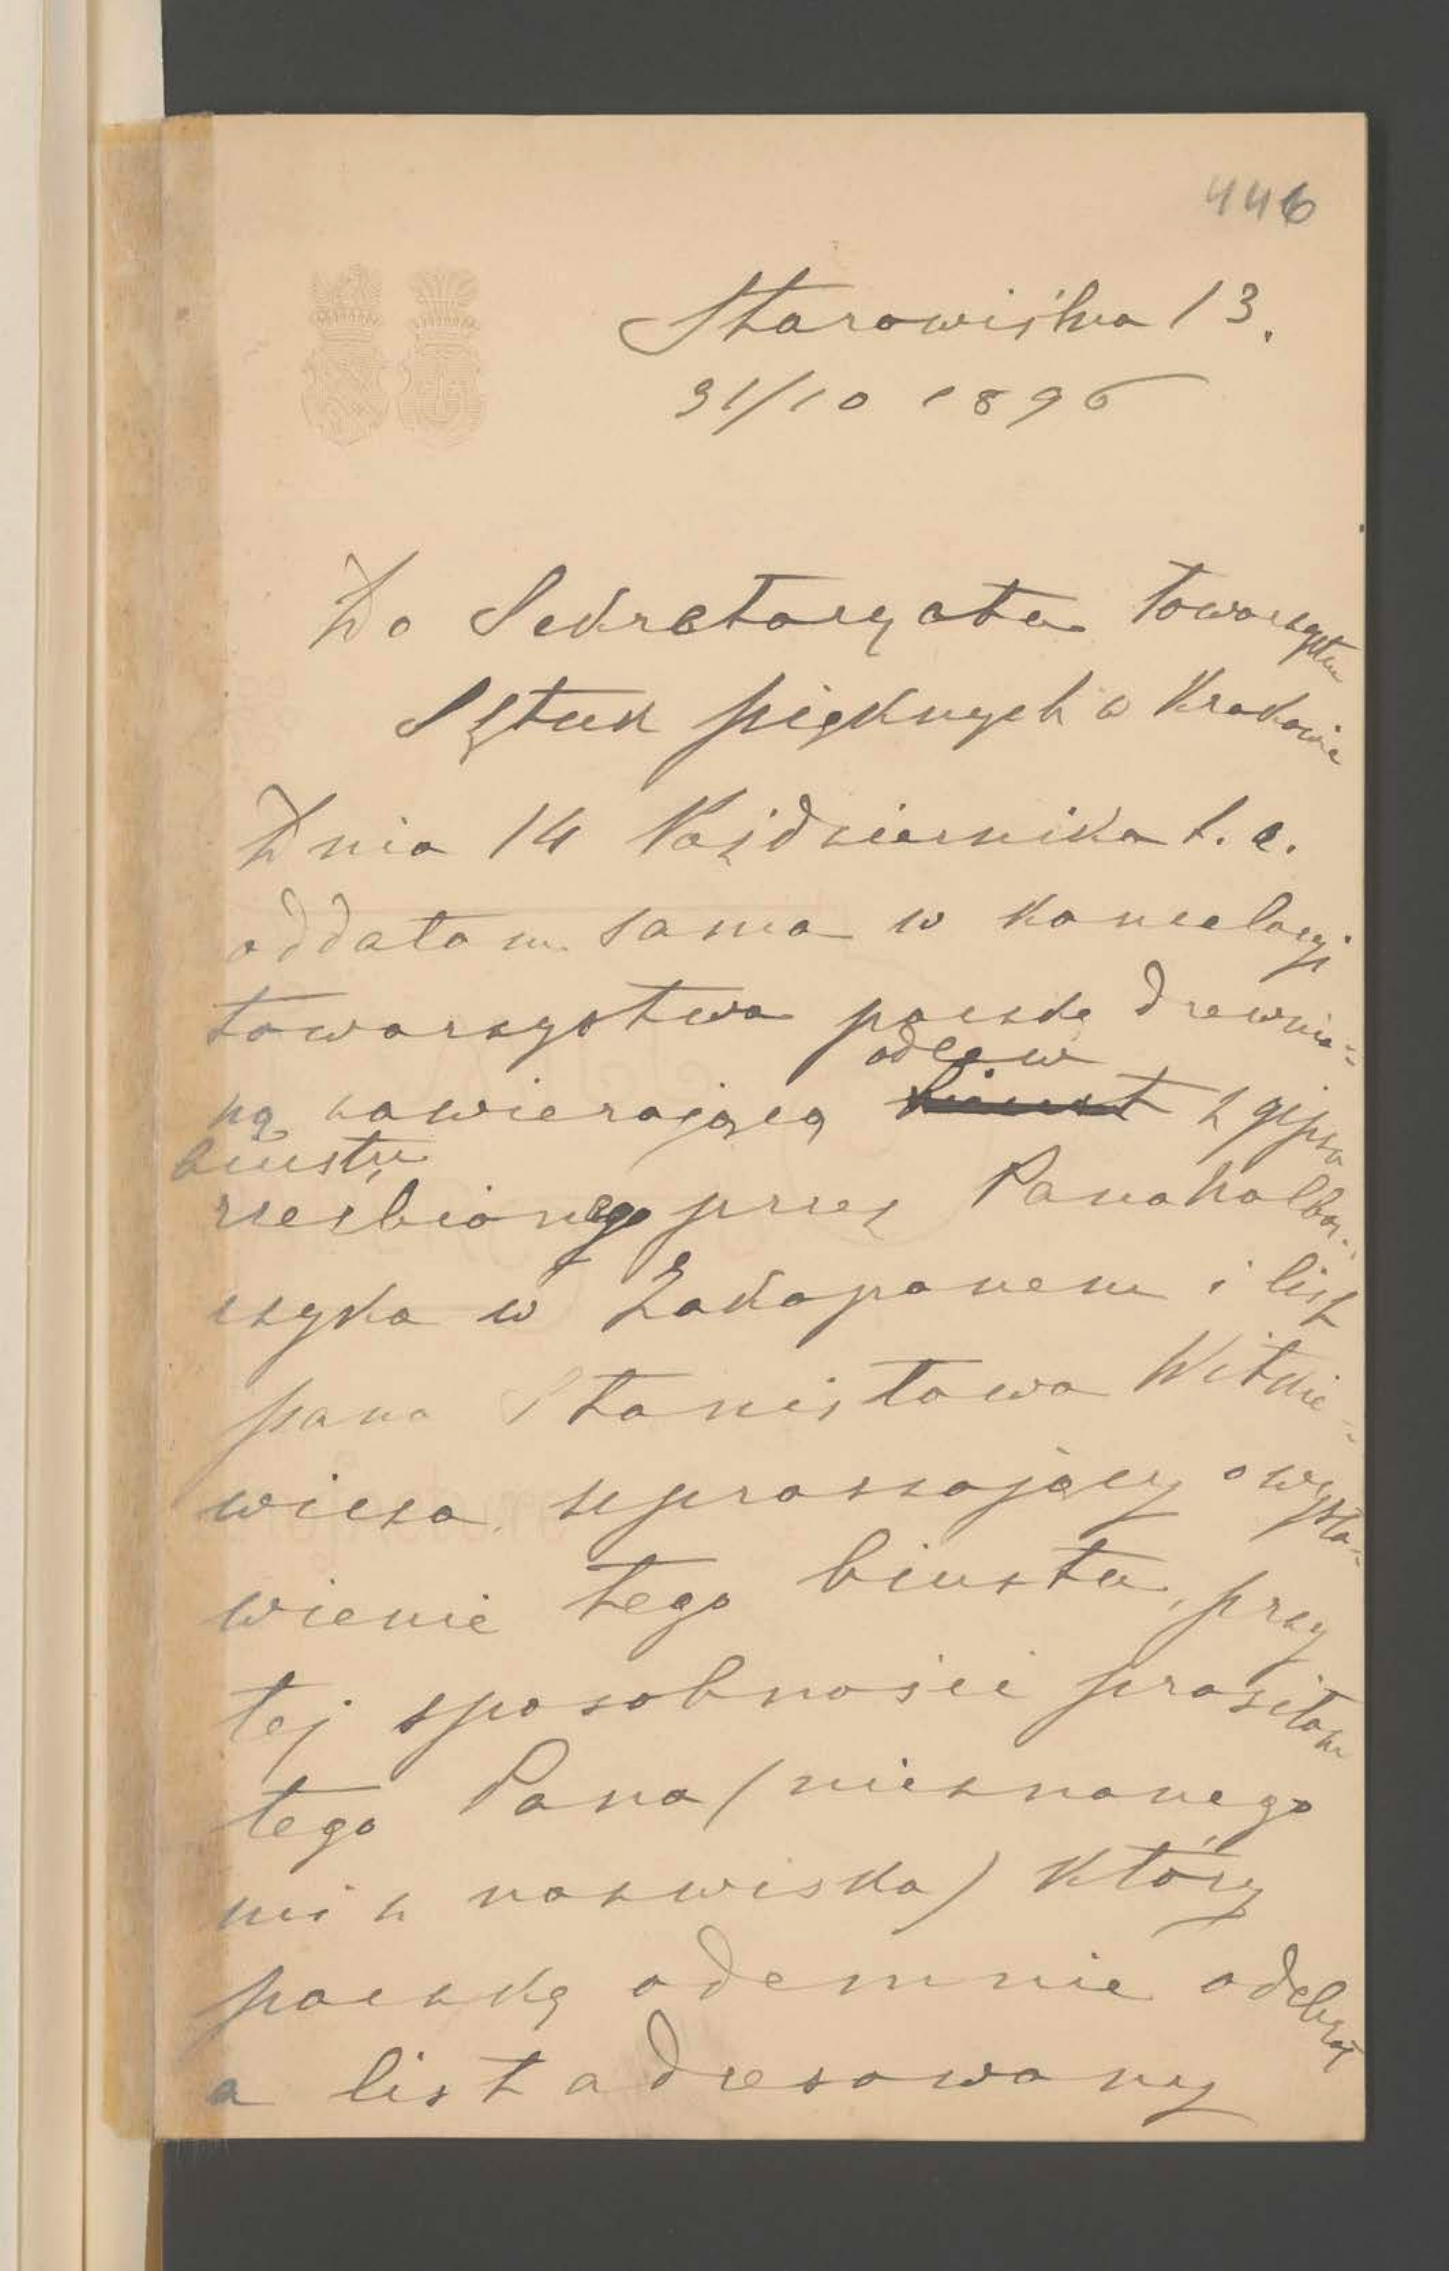 446
Starowiślna 13.
31/10 1896
Do Sekretaryatu Towarzystwa
Sztuk pięknych w Krakowie
Dnia 14 Października b. r.
oddałam sama w kancelaryi
towarzystwa paczkę drewnia=
odlew
ną zawierającą biust z gipsu
biustu
rzezbionego przez Pana
w Zakopanem i list
pana Stanisława Witkie=
wicza upraszający o wysta=
wienie tego biustu, przy
tej sposobności prosiłam
tego Pana (nieznanego
mi z nazwiska) który
paczkę odemnie odebrał
a list adresowany